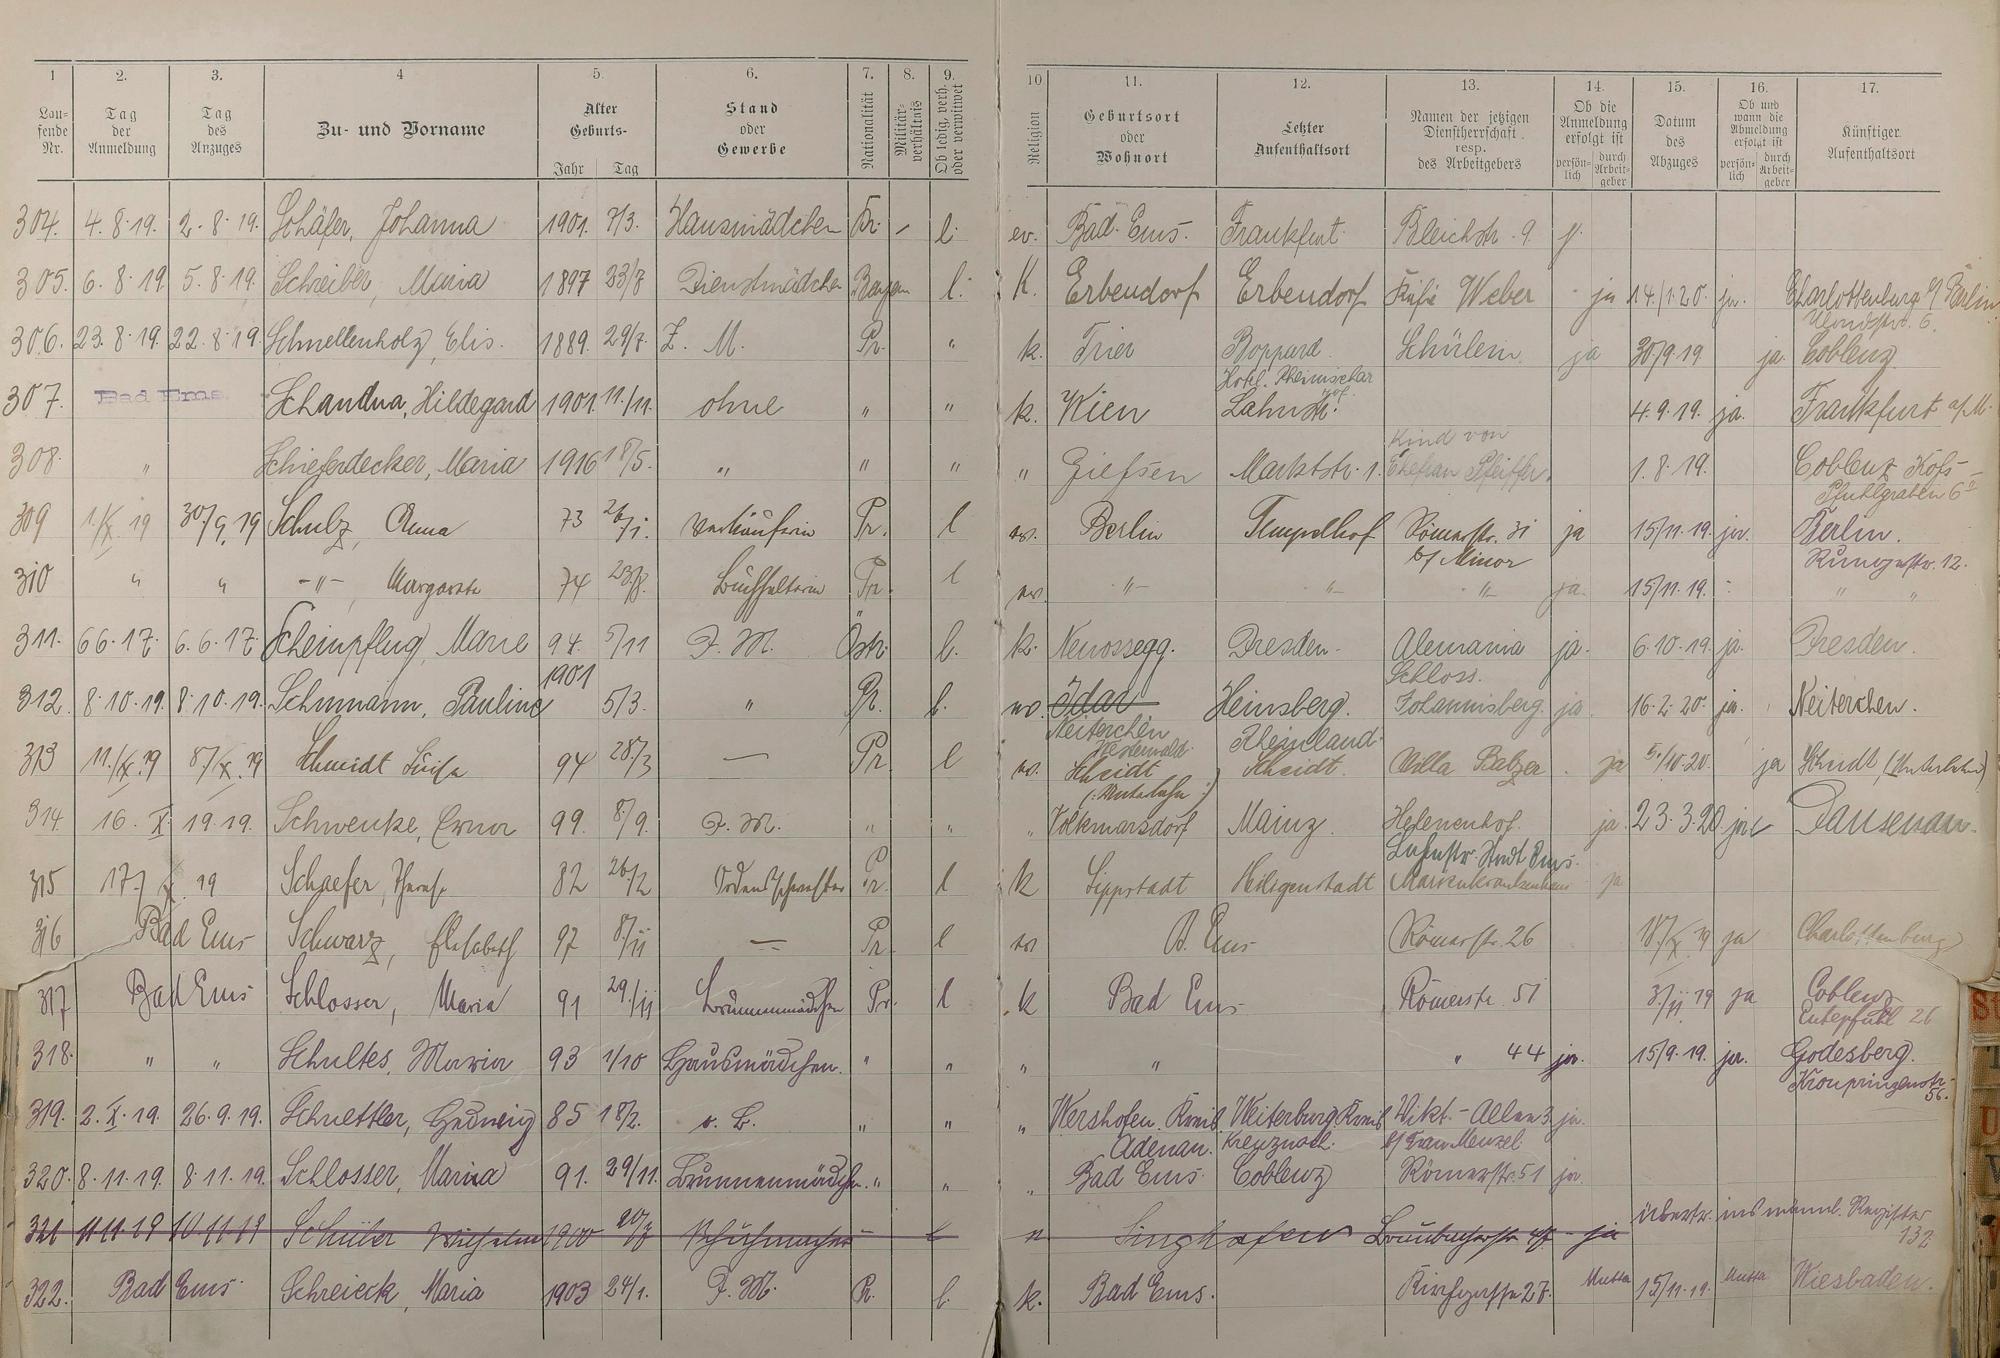 1 2. 3. 4 5. 6. 7. 8. 9. 10 11. 12. 13. 14. 15. 16. 17.
Lau-fende Nr. Tag der Anmeldung Tag des Anzuges Zu- und Vorname Alter Geburts- Jahr Tag Stand oder Gewerbe Nationalität Militär-verhältnis Ob ledig, verh. oder verwitwet Religion Geburtsort oder Wohnort Letzter Aufenthaltsort Namen der jetzigen Dienstherrschaft resp. des Arbeitgebers Ob die Anmeldung erfolgt ist persön-lich durch Arbeit-geber Datum des Abzuges Ob und wann die Abmeldung erfolgt ist persön-lich durch Arbeit-geber Künftiger Aufenthaltsort
304. 4. 8. 19. 2. 8. 19. Schäfer, Johanna 1901. 7/3. Hausmädchen Pr. - l. ev. Bad. Ems. Frankfurt. Bleichstr. 9. j.
305. 6. 8. 19. 5. 8. 19. Schreiber, Maria 1897 23/7 Dienstmädchen Bayern l. K. Erbendorf Erbendorf Weber ja 14./1.20. ja. Charlottenburg b/ Berlin
6.
306. 23. 8. 19. 22. 8. 19. Schnellenholz, Elis. 1889. 29/7. Z. M. Pr. " k. Trier Boppard. Schürlein ja 30/9.19 ja. Coblenz
Hotel. Rheinischer Hof.
307. Bad Ems. Schandua, Hildegard 1901. 11./11. ohne " " k. Kien Lahnstr. 4. 9. 19. ja. Frankfurt a/M.
Kind von
308. " Schieferdecker, Maria 1916 18/5. " " " " Giefsen Marktstr. 1. Ehefrau Pfeiffer. 1. 8. 19. Coblenz Kofs-
Pfuhlgraben 6
309 1./X. 19 30./9. 19 Schulz, Anna 73 26/1. Verkäuferin Pr. l ev. Berlin Tempelhof Römerstr. 31 ja 15/11. 19. ja. Berlin.
b/ Minor Rungestr. 12.
310 " " -"-, Margarete 74 23/8. Buchhalterin Pr. l ev. -"- -"- -"- ja. 15/11. 19. : " "
311. 6 6. 17. 6. 6. 17. Scheinpflug, Marie 94. 5/11 D. M. Östr. l. k. Neuossegg. Dresden. Alemania ja. 6. 10. 19. ja. Dresden.
1901 Schloss.
312. 8. 10. 19. 8. 10. 19. Schumann, Pauline 5/3. " Pr. l. ev. Idar Heinsberg. Johannisberg. ja. 16. 2. 20. ja. Neiterchen.
Neiterchen Westerwald. Rheinland.
313 11./X. 19 8./X. 19 Schmidt Luise 94 28./3 — Pr. l ev. Scheidt Scheidt. Villa Balzer. ja 5./10. 20. ja Scheidt (Unterlahn)
(Unterlahn)
314. 16. X. 19. 19. Schwenke, Erna 99. 8/9. D. M. " " " Volkmarsdorf Mainz. Helenenhof. ja. 23. 3. 20 ja Dausenau.
Lahnstr. Stadt Ems.
315 17./X. 19 Schaefer, Therese 82 26./2 Ordensschwester Pr. l k Lippstadt Heiligenstadt Marienkrankenhaus ja
316 Bad Ems Schwarz, Elisabeth 97 8/11 — Pr. l ev B. Ems Römerstr. 26 18./X. 19 ja Charlottenburg
317 Bad Ems Schlosser, Maria 91 29./11 Brunnenmädchen Pr. l k Bad Ems Römerstr. 51 3./11. 19 ja Coblenz
Entepfuhl 26
318. " " Schultes, Maria 93 1/10 Hausmädchen. " " " " " 44 ja. 15/9. 19. ja. Godesberg.
Kronprinzenstr. 56.
319. 2. X. 19. 26. 9. 19. Schuettler, Hedwig 85 18/2. o. B. " " " Wershofen Kreis Weiterburg Kreis Vikt.-Allee 3 ja.
Adenau. Kreuznach. b/ Frau Menzel
320. 8. 11. 19. 8. 11. 19. Schlosser, Maria 91. 29/11. Brunnenmädch. " " " Bad Ems. Coblenz Römerstr. 51 ja.
übertr. ins männl. Register
321 11 11. 19 10. 11. 19 Schüler Wilhelm 1900 20/7 Schuhmacher — l Singhofen ja 132
322. Bad Ems. Schreieck, Maria 1903 24/1. D. M. Pr. l. k. Bad Ems. Kirchgasse 27. Mutter 15/11. 19. Mutter Wiesbaden.